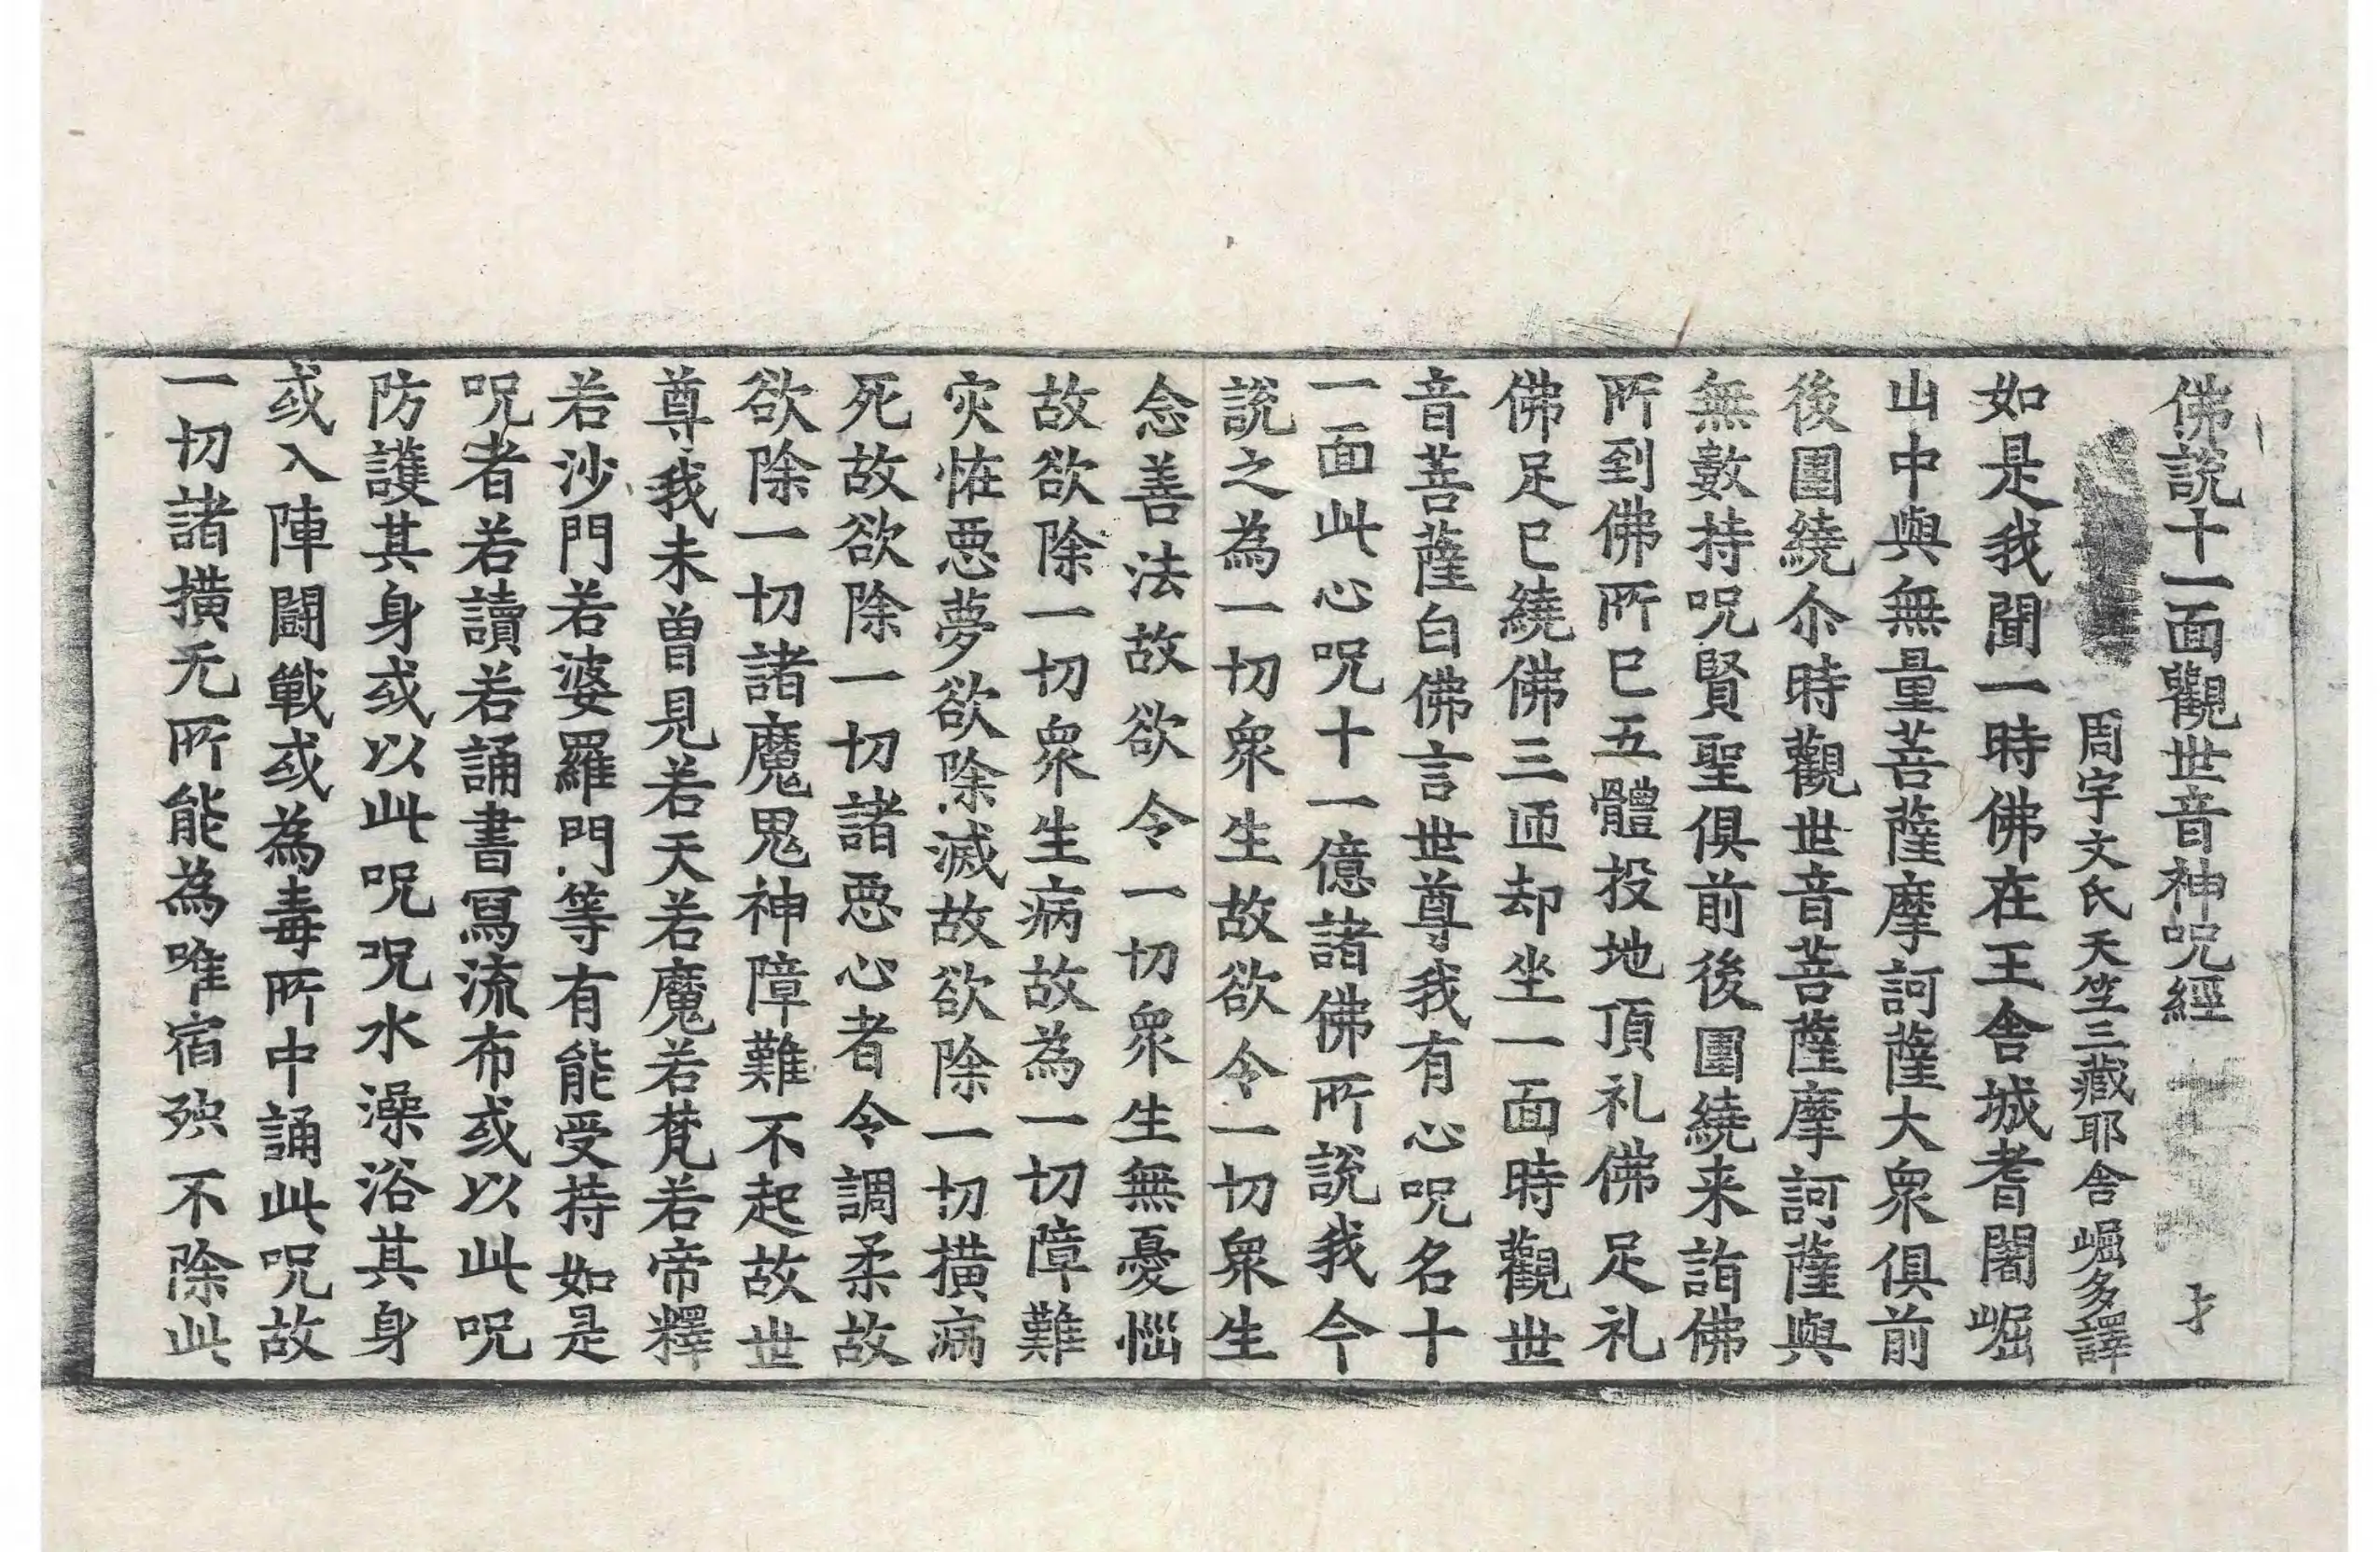 佛說十一面觀世音神呪經
周宇文氏天笁三藏耶舎崛多譯
如是我聞一時佛在王舎城耆闍崛
山中與無量菩薩摩訶薩大衆俱前
後圍繞尒時觀世音菩薩摩訶薩與
無數持呪賢聖俱前後圍繞来詣佛
所到佛所已五體投地頂礼佛足礼
佛足已繞佛三迊却坐一面時觀世
音菩薩白佛言世尊我有心呪名十
一面此心呪十一億諸佛所說我今
說之為一切衆生故欲令一切衆生
念善法故欲令一切衆生無憂惱
故欲除一切衆生病故為一切障難
灾恠惡夢欲除滅故欲除一切横病
死故欲除一切諸惡心者令調柔故
欲除一切諸魔鬼神障難不起故世
尊我未曽見若天若魔若梵若帝釋
若沙門若婆羅門等有能受持如是
呪者若讀若誦書寫流布或以此呪
防護其身或以此呪呪水澡浴其身
或入陣闘戰或為毒所中誦此呪故
一切諸横无所能為唯宿殃不除此